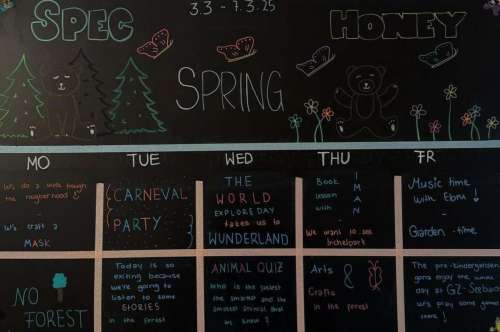 3.3 - 7.3.25
SPEC
HONEY
SPRING
MO
TUE
WED
THU
FR
We do a walk
the neighborhood
-
We craft a
MASK
CARNEVAL
PARTY
THE
WORLD
EXPLORE DAY
takes us to
WUNDERLAND
Book
lesson
with
IMAN
-
We want to see
Music time
with Ebru!
-
Garden-time
NO
FOREST
Today is so
exciting because
we're going to
listen to some
STORIES
in the forest
ANIMAL QUIZ
Who is the fastest
the smartest and the
smallest animal that
Arts
&
Crafts
in the forest
The pre-kindergarten
gang enjoy the whole
day at GZ-Seebach
let's play some games
there!